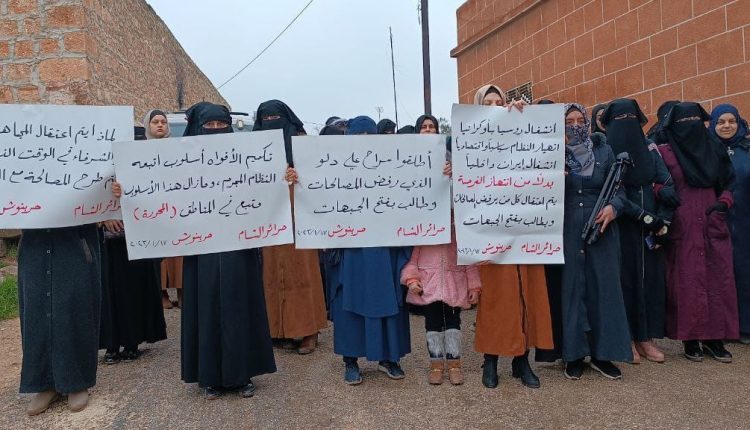 انشغال روسيا بأوكرانيا
انهيار النظام سياسياً واقتصادياً
انشغال إيران داخلياً
بدلاً من انتهاز الفرصة
يتم اعتقال كل من يرفض المصالحات
ويطالب بفتح الجبهات
حرائر الشام حربنوش ٢٠٢٣/١/١٧
أطلقوا سراح علي دلو
الذي رفض المصالحات
وطالب بفتح الجبهات
حرائر الشام حربنوش ٢٠٢٣/١/١٧
تكميم الأفواه أسلوب اتبعه
النظام المجرم، ومازال هذا الأسلوب
متبع في المناطق (المحررة)
حرائر الشام حربنوش ٢٠٢٣/١/١٧
لماذا يتم اعتقال
الشرفاء في الوقت
طرح المصالحة مع
حرائر الشام حربنوش